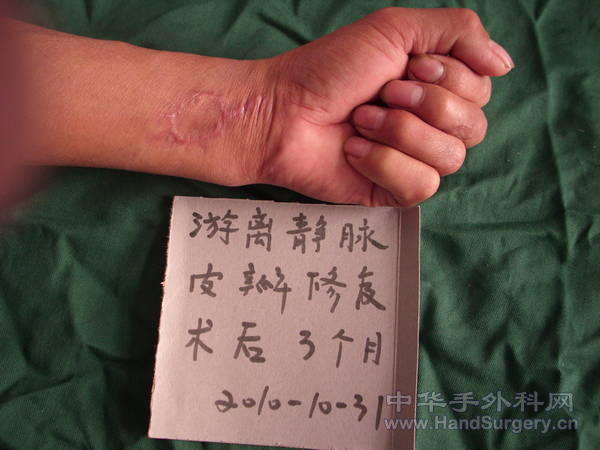 游离静脉
皮瓣修复
术后3个月
2010-10-31
中华手外科网
www.HandSurgery.cn